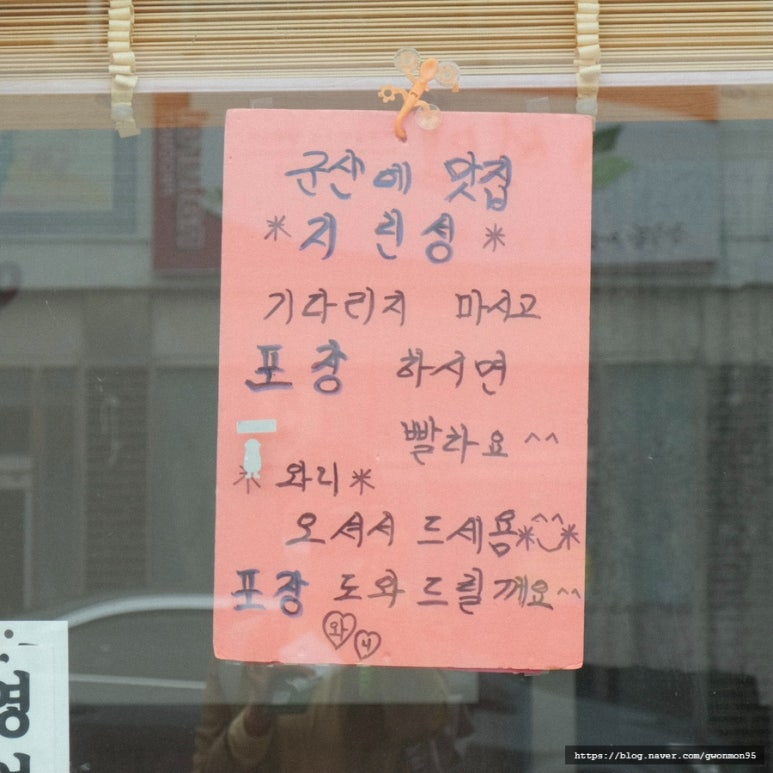 군산에 맛집
*지린성*
기다리지 마시고
포장 하시면
빨라요^^
*와리*
오셔서 드세욤*^^*
포장 도와드릴께요^^
와
리
영
https://blog.naver.com/gwonmon95